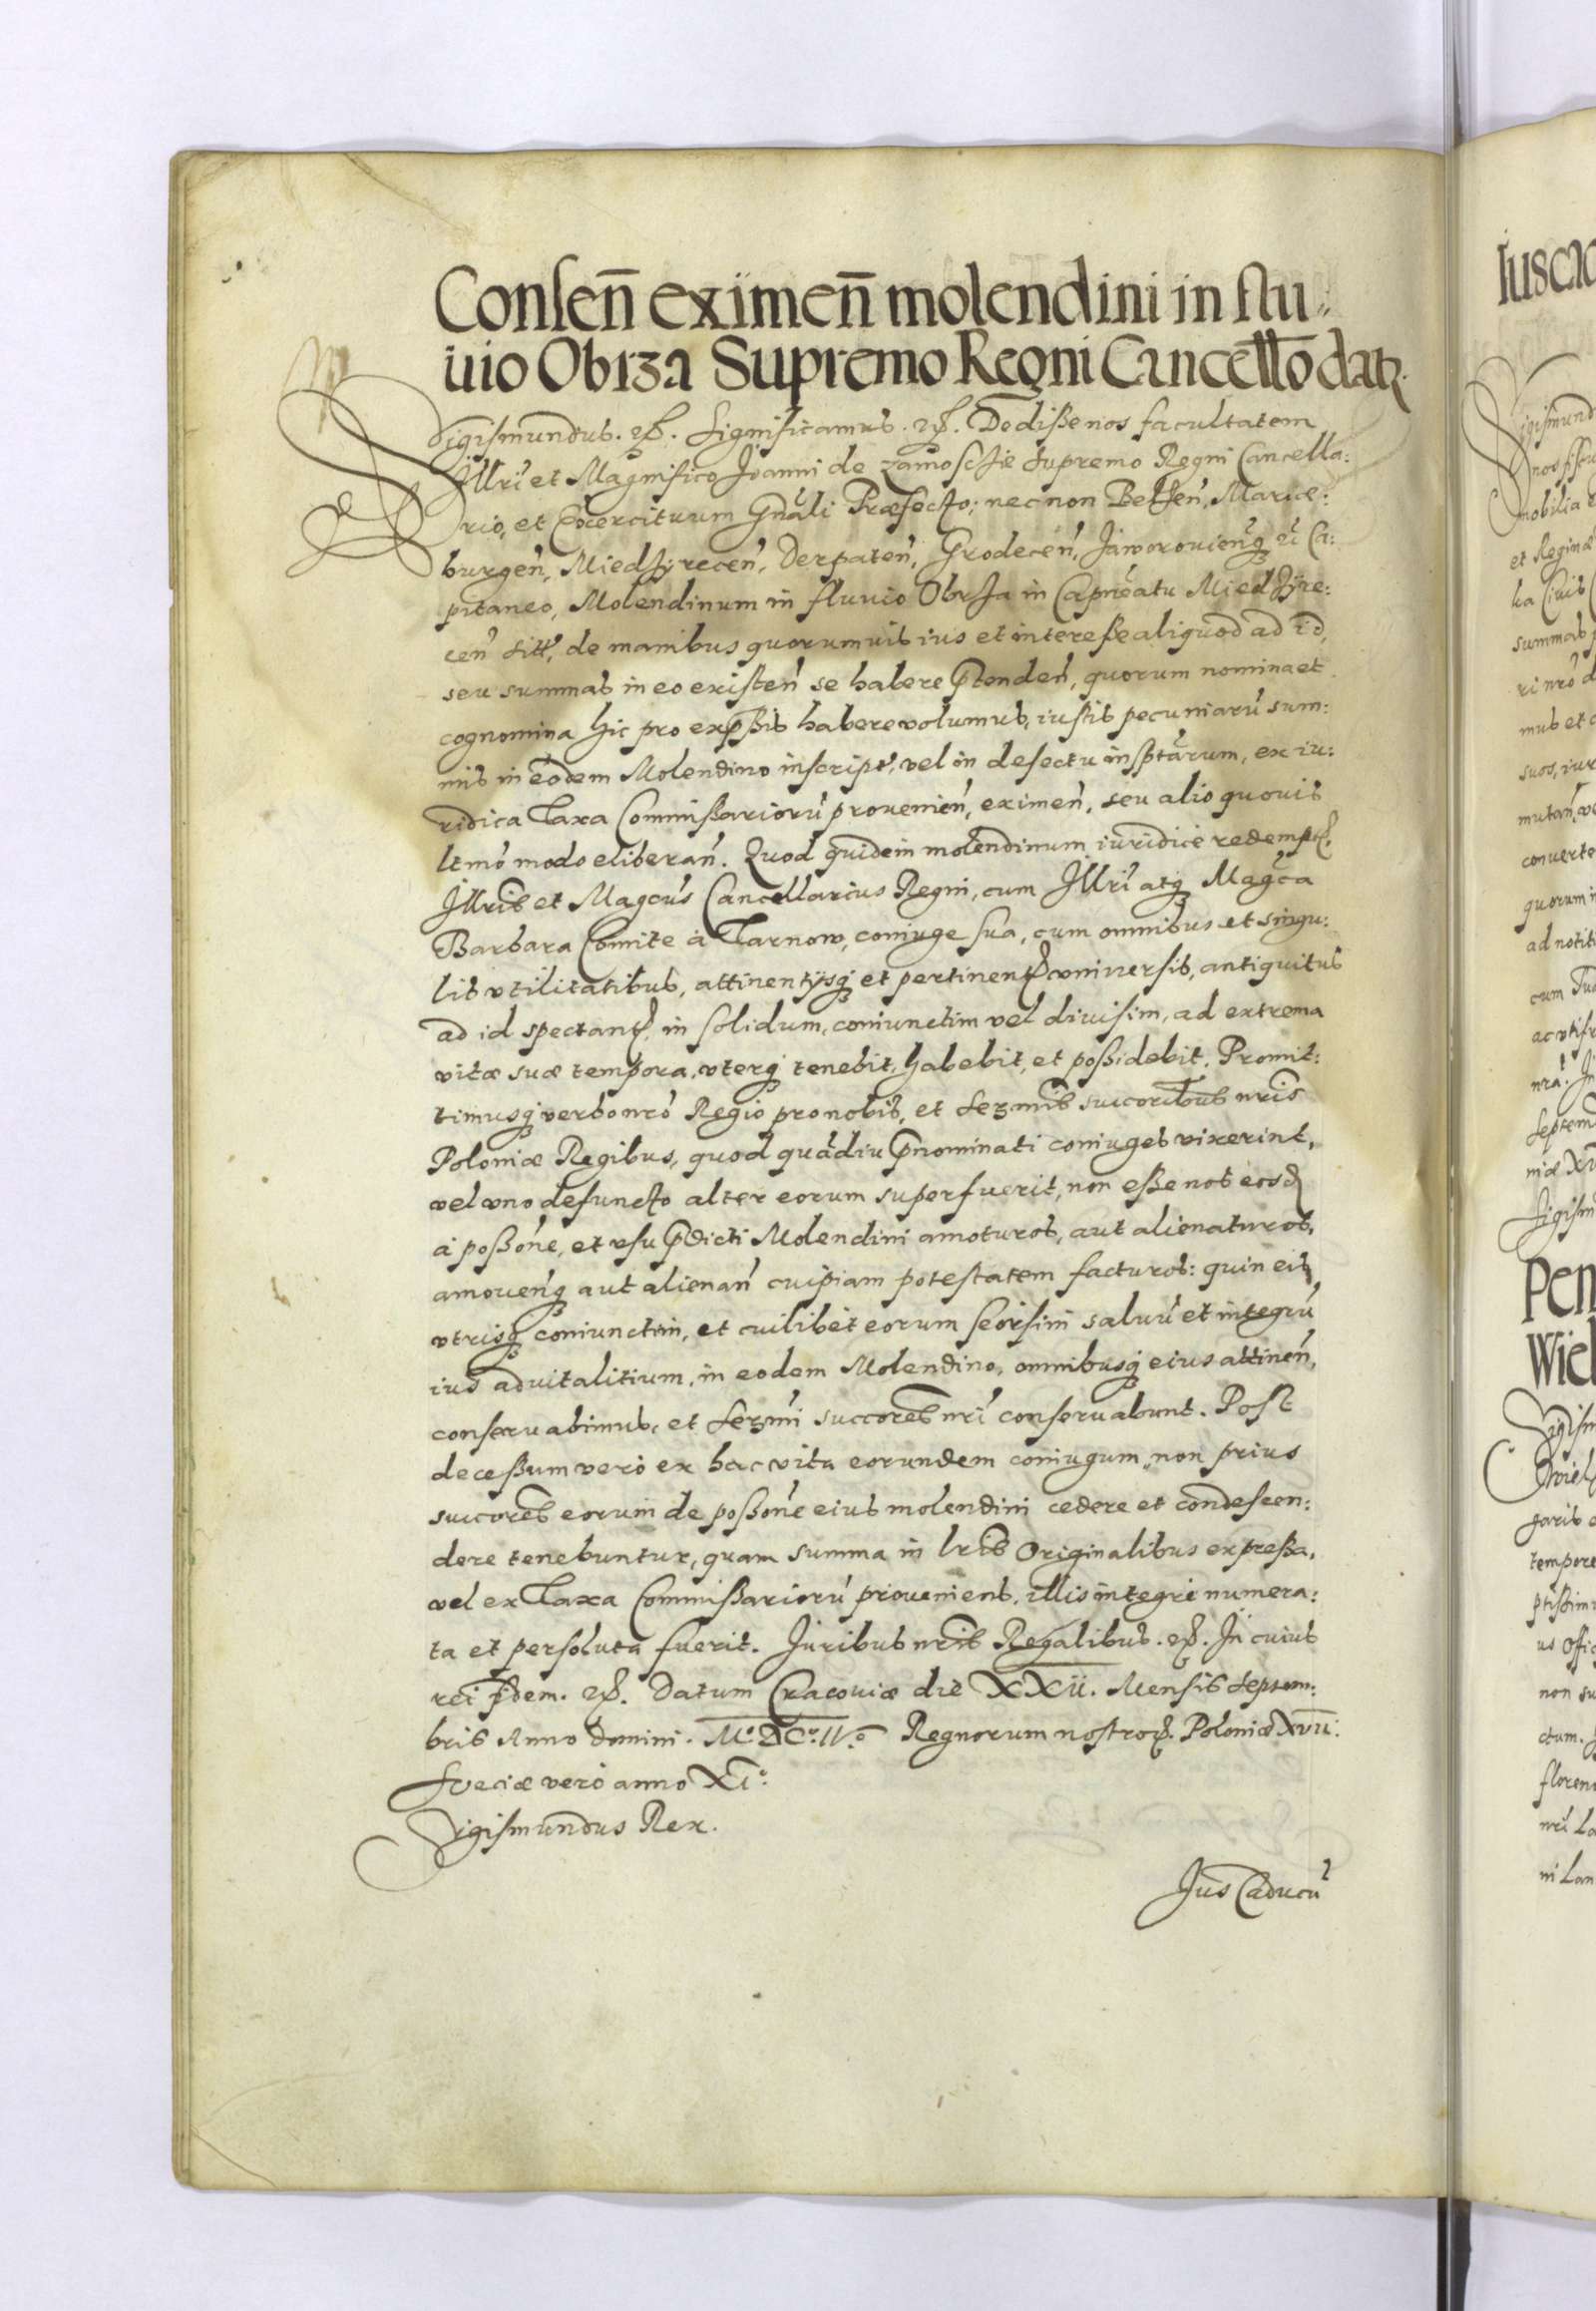 Consen̄ eximen̄ molendini in flu„
uio Obrza Supremo Regni Cancell̄o datꝫ.
Sigismundus. etc. Significamus. etc. Dedisse nos facultatem
Illri et Magnifico Joanni de Zamoscie Supremo Regni Cancella:
rio, et Exercituum Gnāli Præfecto; nec non Belsen̄, Mariæ:
burgen̄, Miedzyrecen̄, Derpaten̄, Grodecen̄, Jaworouien̄qꝫ Ca:
pitaneo, Molendinum in fluuio Obrza in Capnēatu Miedzyre:
cen̄ sitt, de manibus quorumuis ius et interesse aliquod ad id,
seu summas in eo existen̄ se habere p̄tenden̄, quorum nomina et
cognomina hic pro exp̄ssis habere volumus, iustis pecuniarū sum:
mis in eodem Molendino inscript, vel in defectu insptārum, ex iu:
ridica Taxa Commissariorū prouenien̄, eximen̄, seu alio quouis
ltmō modo eliberan̄. Quod quidem molendinum iuridicè redempt,
Illris et Magcus Cancellarius Regni, cum Illri atqꝫ Magca
Barbara Comite à Tarnow, coniuge sua, cum omnibus et singu:
lis vtilitatibus, attinentijsqꝫ et pertinent vniuersis, antiquitus
ad id spectant, in solidum, coniunctim vel diuisim, ad extrema
vitæ suæ tempora, vterqꝫ tenebit, habebit, et possidebit. Promit:
timusqꝫ verbo nrō Regio pro nobis, et Serꝫmis succoribus nris
Poloniæ Regibus, quod quādiu p̄nominati coniuges vixerint,
vel vno defuncto alter eorum superfuerit, non esse nos eosd
à possōne, et vsu p̄dicti Molendini amoturos, aut alienaturos,
amouen̄qꝫ aut alienan̄ cuipiam potestatem facturos: quin eis
vtrisqꝫ coniunctim, et cuilibet eorum seorsim saluū et integrū
ius aduitalitium, in eodem Molendino, omnibusqꝫ eius attinen̄,
conseruabimus, et Serꝫmi succores nri conseruabunt. Post
decessum verò ex hac vita eorundem coniugum, non prius
succores eorum de possōne eius molendini cedere et condescen:
dere tenebuntur, quam summa in lris Originalibus expressa,
vel ex Taxa Commissariorū proueniens, illis integrè numera:
ta et persoluta fuerit. Juribus nris Regalibus. etc. In cuius
rei fidem. etc. Datum Cracouiæ die XXII. Mensis Septem:
bris Anno Domini. Mº.DCº.IVº. Regnorum nostroꝝ. Poloniæ XVII.
Sueciæ verò anno XIº.
Sigismundus Rex.
Jus Caducū